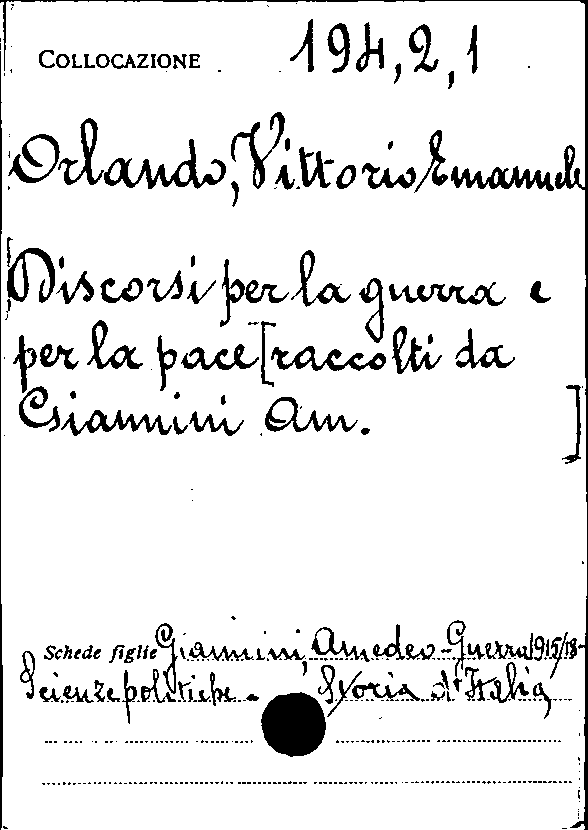 COLLOCAZIONE 194,2,1
Orlando, Vittorio Emanuele
Discorsi per la guerra e
per la pace [raccolti da
Giannini Am. ]
Schede figlie Giannini, Amedeo - Guerra 1915/18 -
Scienze politiche - Storia d'Italia